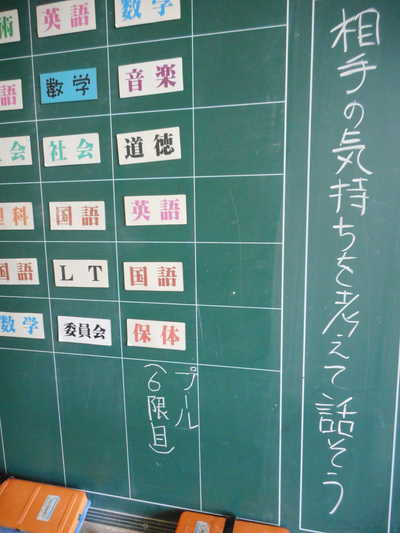 相手の気持ちを考えて話そう
術 英語 数学
語 数学 音楽
会 社会 道徳
理科 国語 英語
国語 LT 国語
数学 委員会 保体
プール
(6限目)